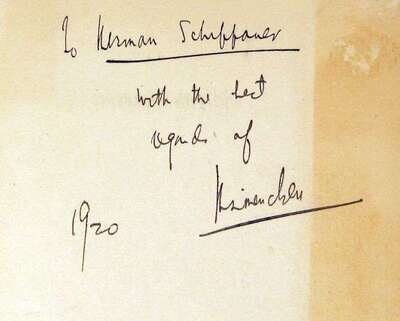 To Herman Scheffauer
with the best
regards of
HLMencken
1920